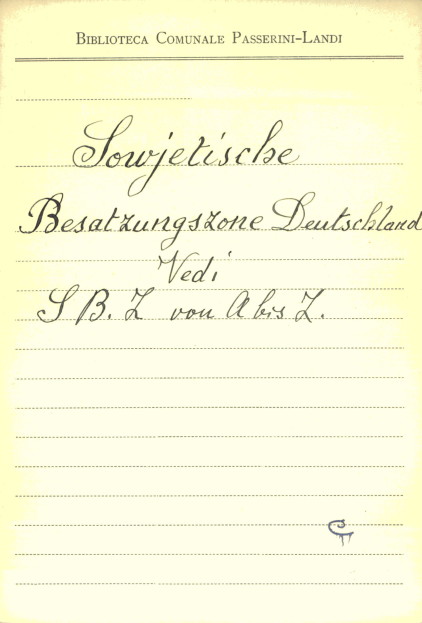 BIBLIOTECA COMUNALE PASSERINI-LANDI
Sowjetische
Besatzungszone Deutschland
Vedi
S B. Z von A bis Z.